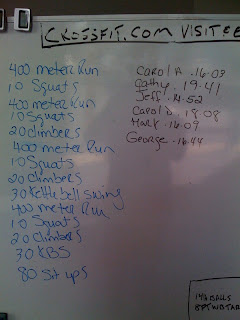 CROSSFIT.COM VISITEE
400 meter Run
10 Squats
400 meter Run
10 Squats
20 climbers
400 meter Run
10 Squats
20 climbers
30 Kettlebell swing
400 meter Run
10 Squats
20 climbers
30 KBS
80 Sit ups
Carol A . 16:03
Cathy . 19:41
Jeff . 14:52
Carol D . 18:08
Mark . 16:09
George . 16:44
14# BALLS